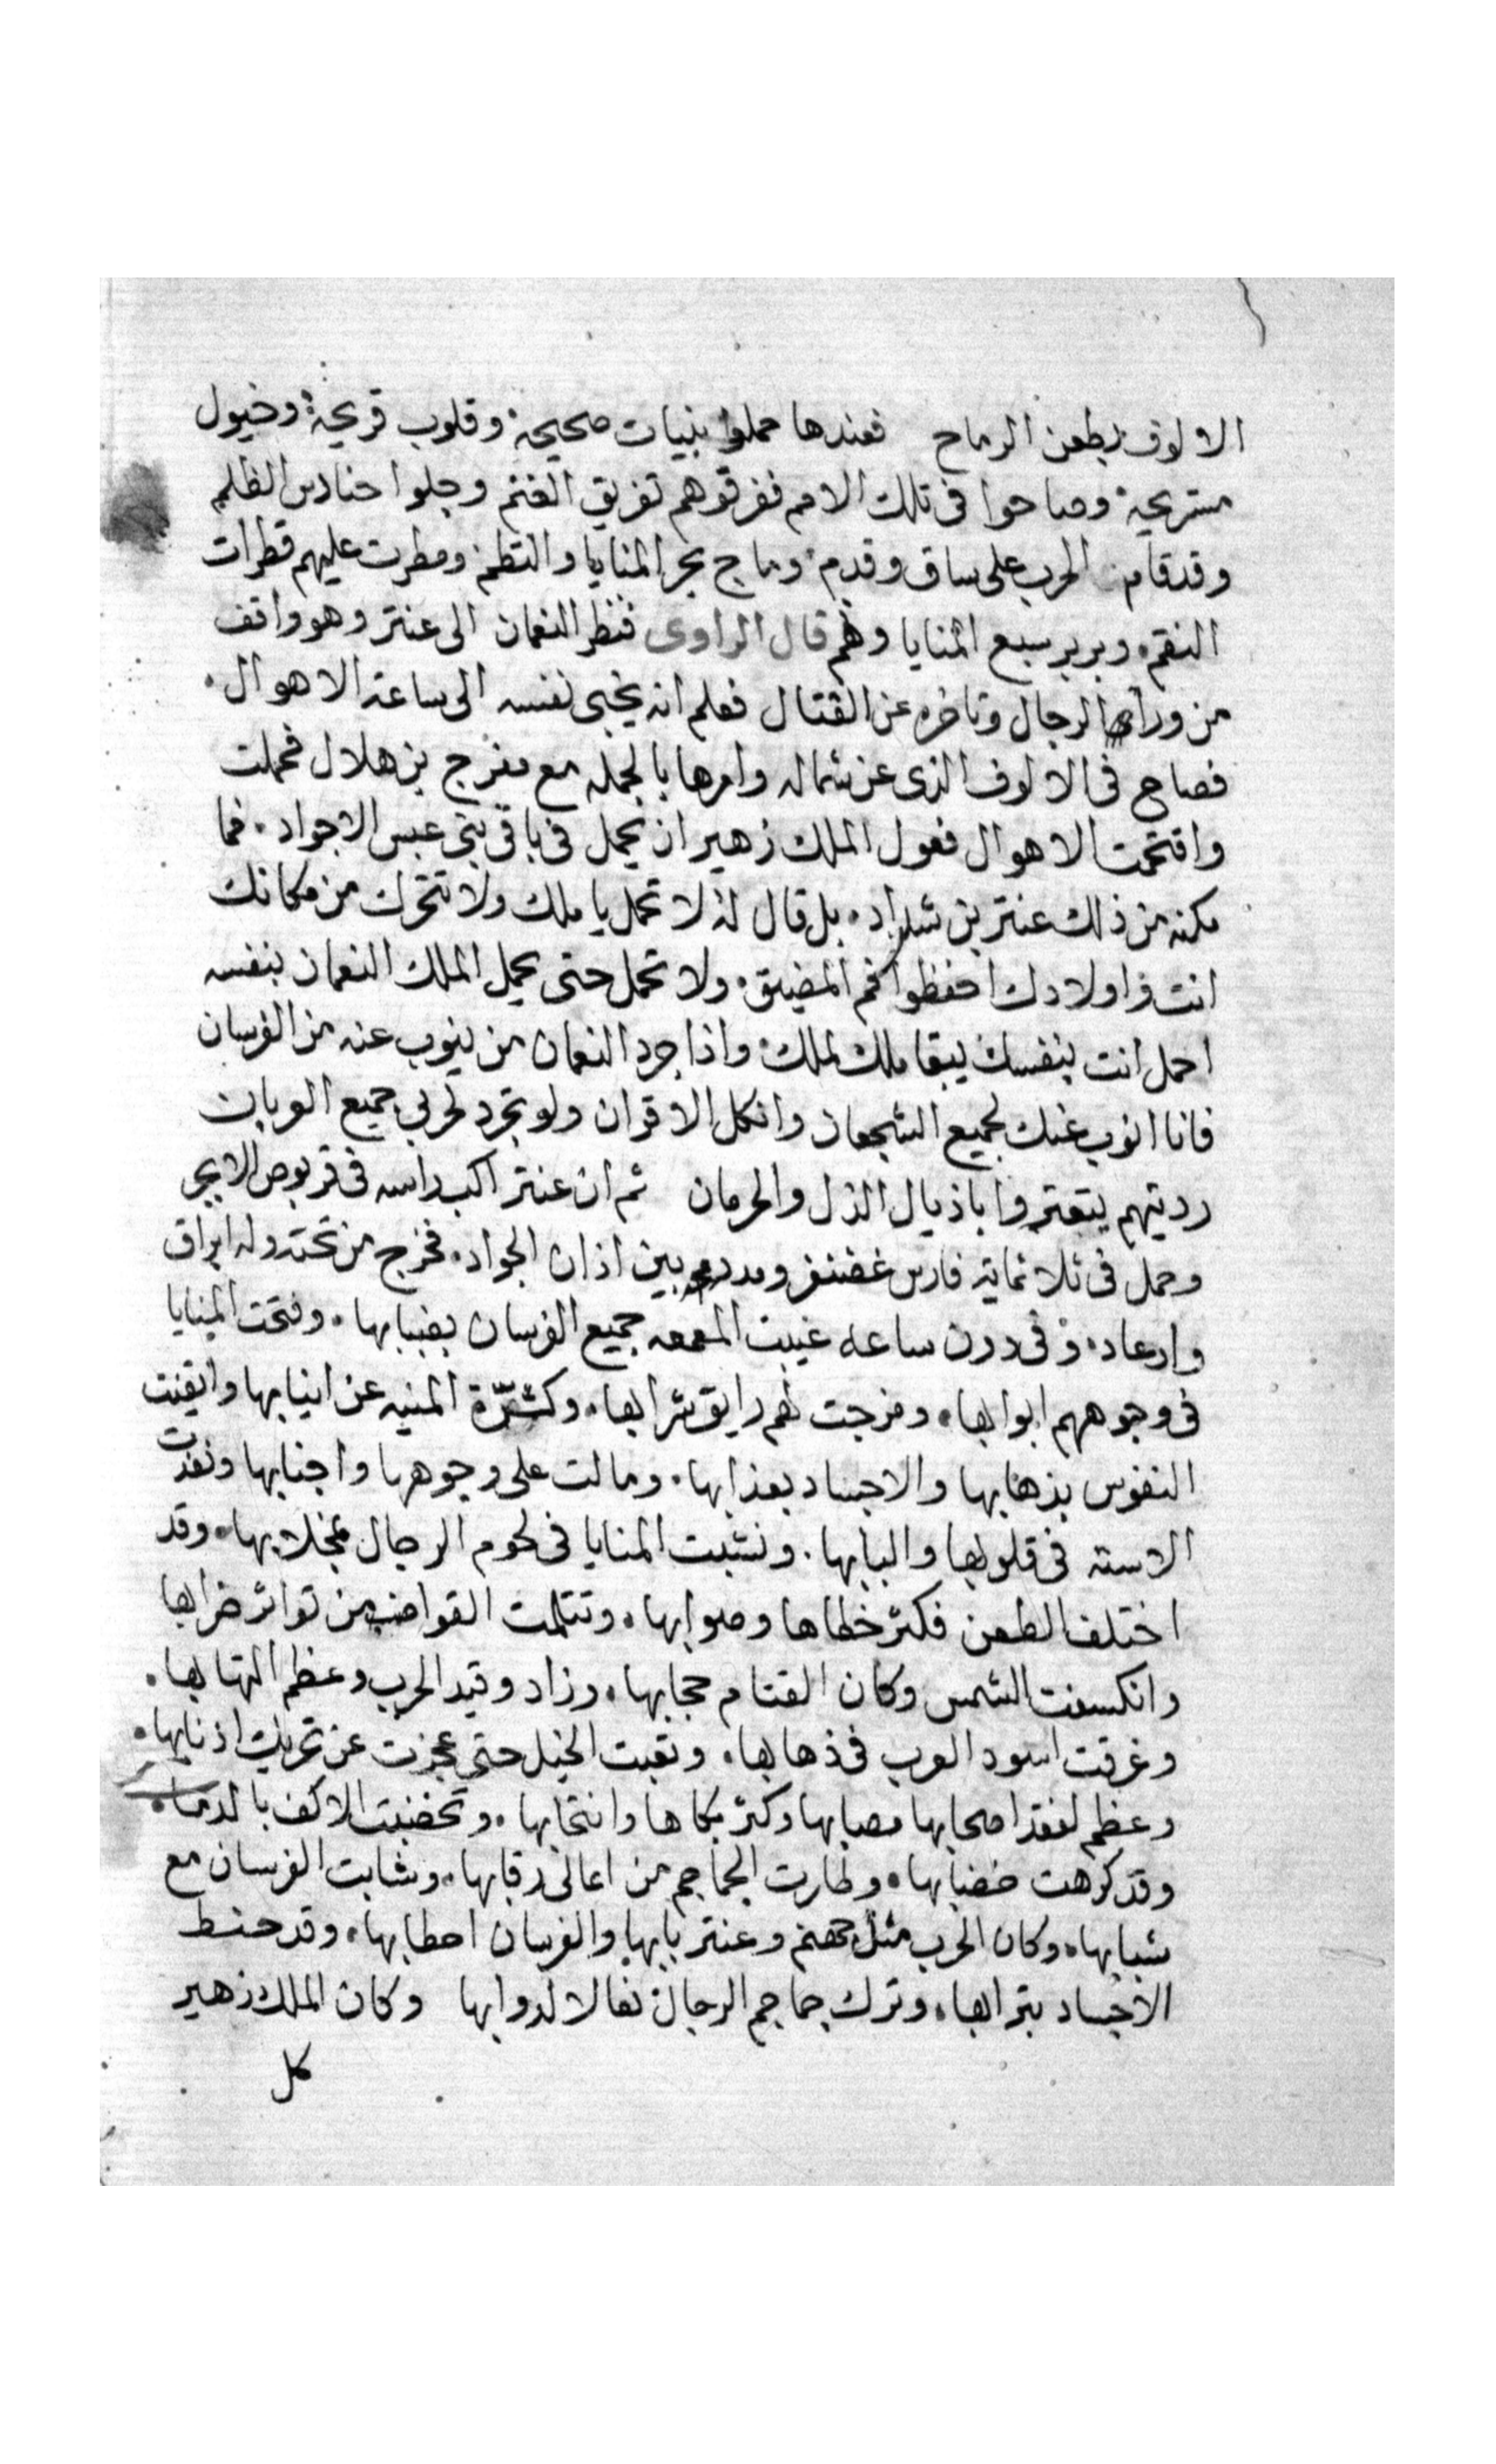 الالوف بطعن الرماح فعندها حملوا بنيات صحيحة وقلوب قريحة وخيول
مستريحة وصاحوا فى تلك الامم ففرقوهم تفريق الغنم وجلوا حنادس الظلم
وقد قامت الحرب على ساق وقدم وماج بحر المنايا والتطم ومطرت عليهم قطرات
النقم وبربر سبع المنايا وهم قال الراوى فنظر النعمان الى عنتر وهو واقف
من وراء الرجال وتاخره عن القتال فعلم انه يخبى نفسه الى ساعة الاهوال
فصاح فى الالوف الذى عن شماله وامرها بالحمله مع مفرج بن هلال فحملت
واقتحمت الاهوال فعول الملك زهير ان يحمل فى باقى بنى عبس الاجواد فما
مكنه من ذلك عنتر بن شداد بل قال له لا تحمل يا ملك ولا تتحرك من مكانك
انت واولادك احفظوا فم المضيق ولا تحمل حتى يحمل الملك النعمان بنفسه
احمل انت بنفسك يبقا ملك لملك واذا جرد النعمان من ينوب عنه من الفرسان
فانا انوب عنك لجميع الشجعان وانكل الاقران ولو تجرد لحربى جميع العربان
رديتهم يتعتروا باذيال الذل والحرمان ثم ان عنتر اكب راسه فى قربوص الابجر
وحمل فى ثلاثماية فارس غضنفر ومدد بين اذان الجواد فخرج من تحته وله ابراق
وارعاد وفى دون ساعه غيبت المعمعه جميع الفرسان بضبابها وفتحت المنايا
فى وجوههم ابوابها ومزجت لهم رايق شرابها وكشرة المنيه عن انيابها وايقنت
النفوس بذهابها والاجساد بعذابها ومالت على وجوهها واجنابها ونفدت
الاسنه فى قلوبها والبابها ونشبت المنايا فى لحوم الرجال بمخلابها وقد
اختلف الطعن فكثر خطاها وصوابها وتثلمت القواضب من تواتر ضرابها
وانكسفت الشمس وكان القتام حجابها وزاد وقيد الحرب وعظم التهابها
وغرقت اسود العرب فى ذهابها وتعبت الخيل حتى عجزت عن تحريك اذنابها
وعظم لفقد اصحابها مصابها وكثر بكاها وانتحابها وتخضبت الاكف بالدما
وقد كرهت خضابها وطارت الجماجم من اعالى رقابها وشابت الفرسان مع
شبابها وكان الحرب مثل جهنم وعنتر بابها والفرسان احطابها وقد حنط
الاجساد بترابها وترك جماجم الرجال نعالا لدوابها وكان الملك زهير
كل